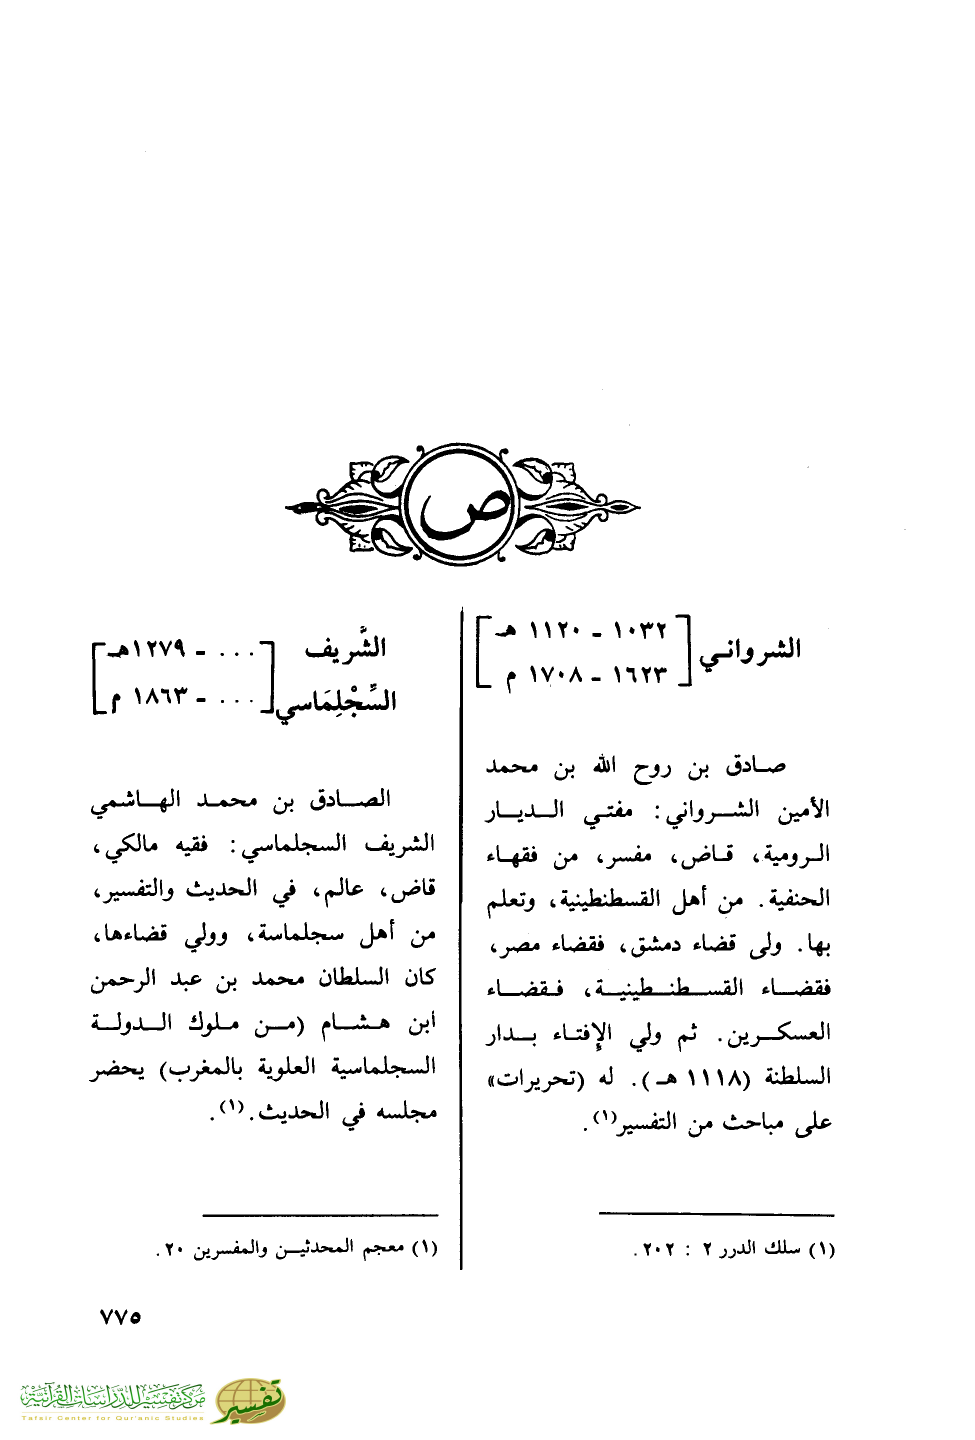 ص
الشرواني [ ١٠٣٢ - ١١٢٠ هـ
١٦٢٣ - ١٧٠٨ م ]
صادق بن روح الله بن محمد
الأمين الشرواني: مفتي الديار
الرومية، قاض، مفسر، من فقهاء
الحنفية. من أهل القسطنطينية، وتعلم
بها. ولى قضاء دمشق، فقضاء مصر،
فقضاء القسطنطينية، فقضاء
العسكرين. ثم ولي الإفتاء بدار
السلطنة (١١١٨ هـ). له (تحريرات»
على مباحث من التفسير(١).
(١) سلك الدرر ٢ : ٢٠٢.
الشَّريف [ ... - ١٢٧٩هـ
السِّجْلِمَاسي ... - ١٨٦٣ م ]
الصادق بن محمد الهاشمي
الشريف السجلماسي: فقيه مالكي،
قاض، عالم، في الحديث والتفسير،
من أهل سجلماسة، وولي قضاءها،
كان السلطان محمد بن عبد الرحمن
ابن هشام (من ملوك الدولة
السجلماسية العلوية بالمغرب) يحضر
مجلسه في الحديث.(١).
(١) معجم المحدثين والمفسرين ٢٠.
٧٧٥
مركز تفسير للدراسات القرآنية
Tafsir Center for Qur'anic Studies
تفسير